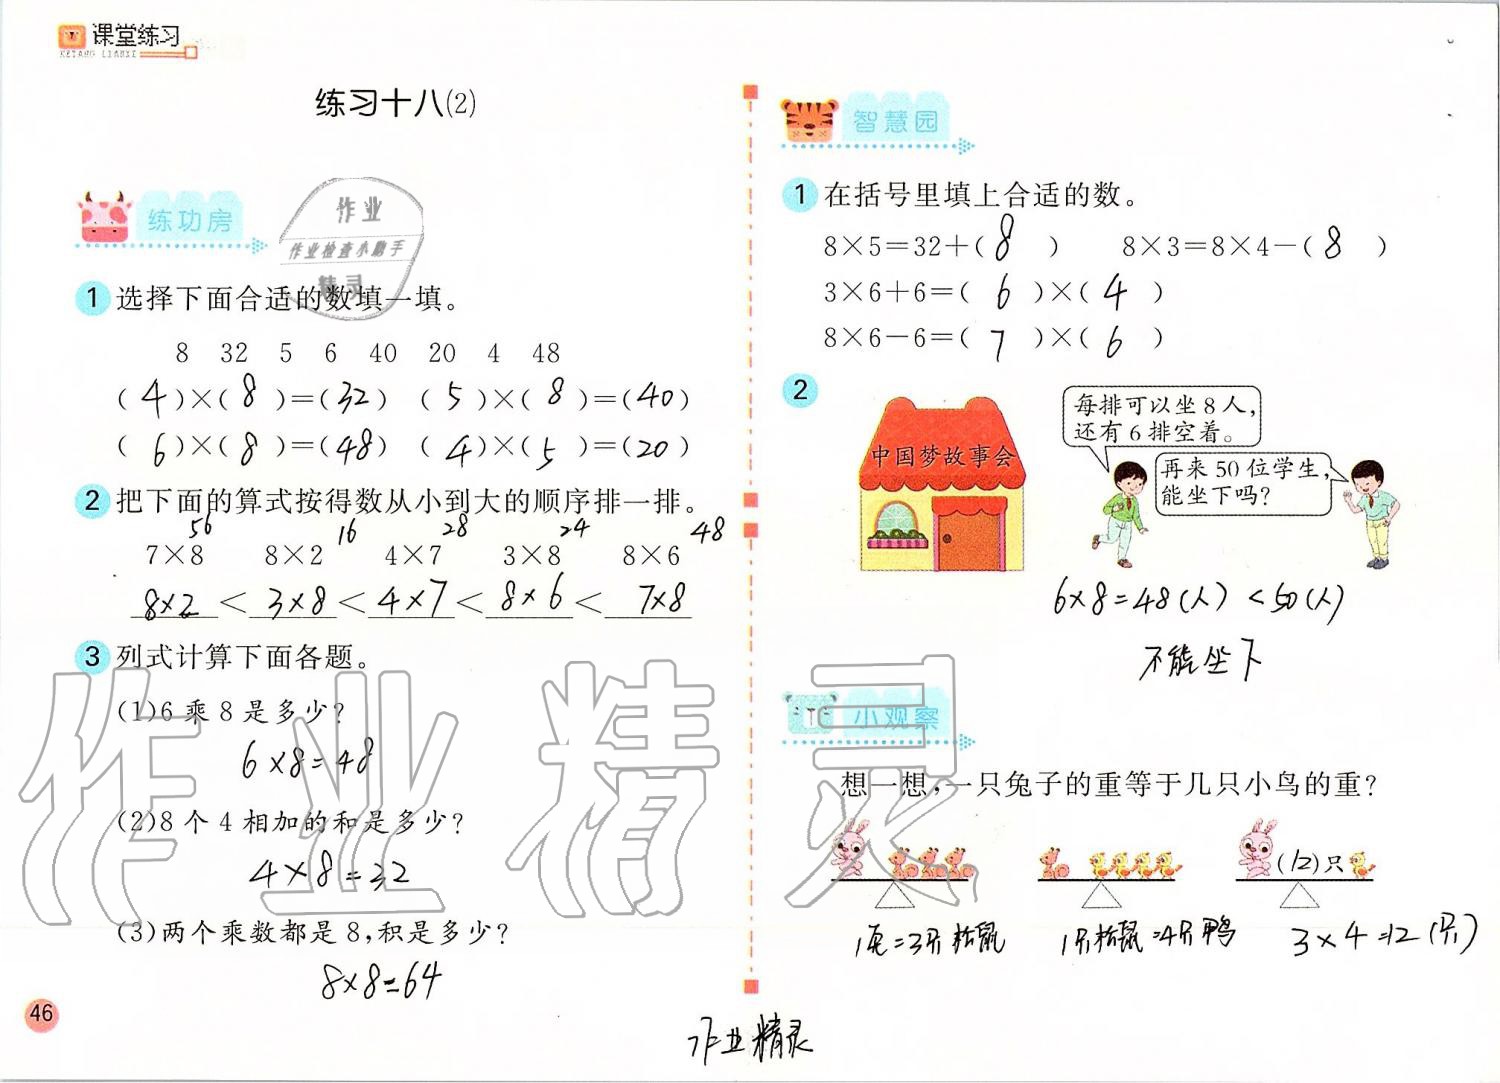 课堂练习
KETANG LIANXI
练习十八(2)
练功房
作业
作业检查小助手
精灵
1 选择下面合适的数填一填。
8 32 5 6 40 20 4 48
(4)×(8)=(32) (5)×(8)=(40)
(6)×(8)=(48) (4)×(5)=(20)
2 把下面的算式按得数从小到大的顺序排一排。
56 16 28 24 48
7×8 8×2 4×7 3×8 8×6
8×2 < 3×8 < 4×7 < 8×6 < 7×8
3 列式计算下面各题。
(1)6乘8是多少?
6×8=48
(2)8个4相加的和是多少?
4×8=32
(3)两个乘数都是8,积是多少?
8×8=64
46
智慧园
1 在括号里填上合适的数。
8×5=32+(8) 8×3=8×4-(8)
3×6+6=(6)×(4)
8×6-6=(7)×(6)
2
中国梦故事会
每排可以坐8人,
还有6排空着。
再来50位学生,
能坐下吗?
6×8=48(人)<50(人)
不能坐下
小观察
想一想,一只兔子的重等于几只小鸟的重?
(12)只
1兔=3只松鼠 1只松鼠=4只鸭 3×4=12(只)
作业精灵
作业精灵